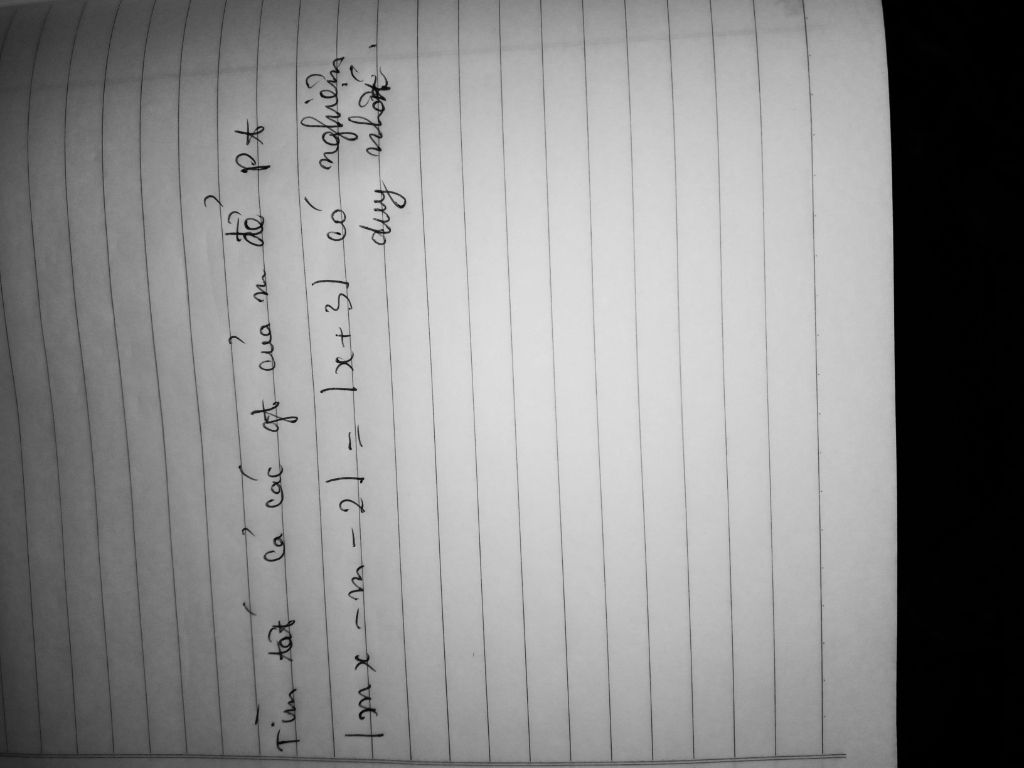 Tìm tất cả các gt của m để pt
|mx - m - 2| = |x + 3| có nghiệm
duy nhất.